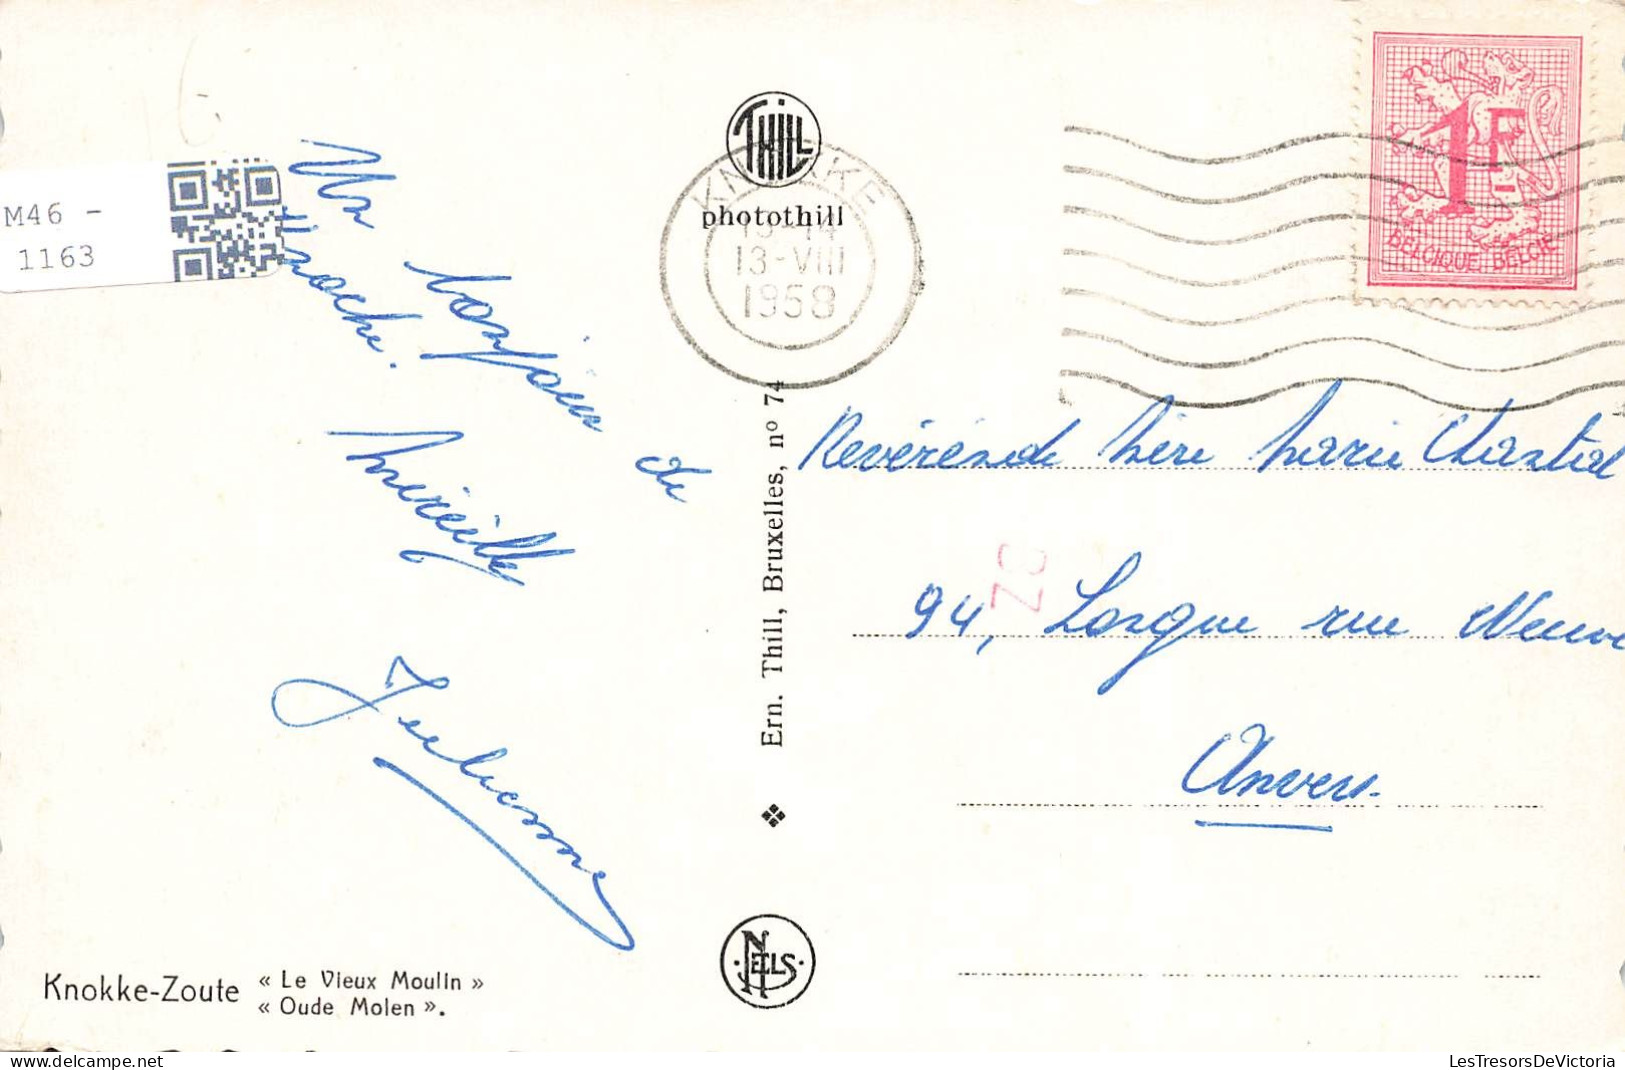 M46 -
1163
Un bonjour de
Knocke.
Mireille
THILL
photothill
KNOKKE
13-14
13-VIII
1958
1F
BELGIQUE BELGIE
Ern. Thill, Bruxelles, nº 74
Révérende Mère Marie Chantal
94, Longue rue Neuve
Anvers.
NELS
Knokke-Zoute « Le Vieux Moulin »
« Oude Molen ».
LesTresorsDeVictoria